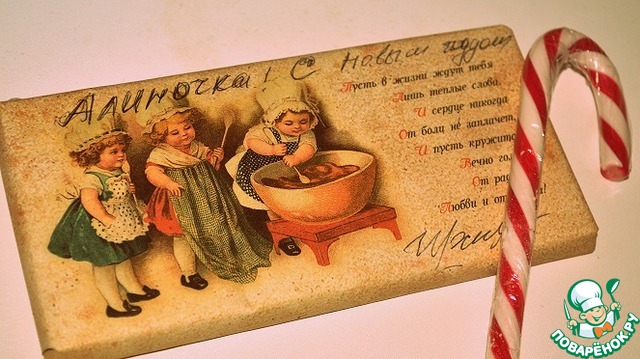 Алиночка! С Новым годом
Пусть в жизни ждут тебя
Лишь теплые слова,
И сердце никогда
От боли не заплачет,
И пусть кружится
Вечно гол
От рад
Любви и от
ПОВАРЁНОК.РУ